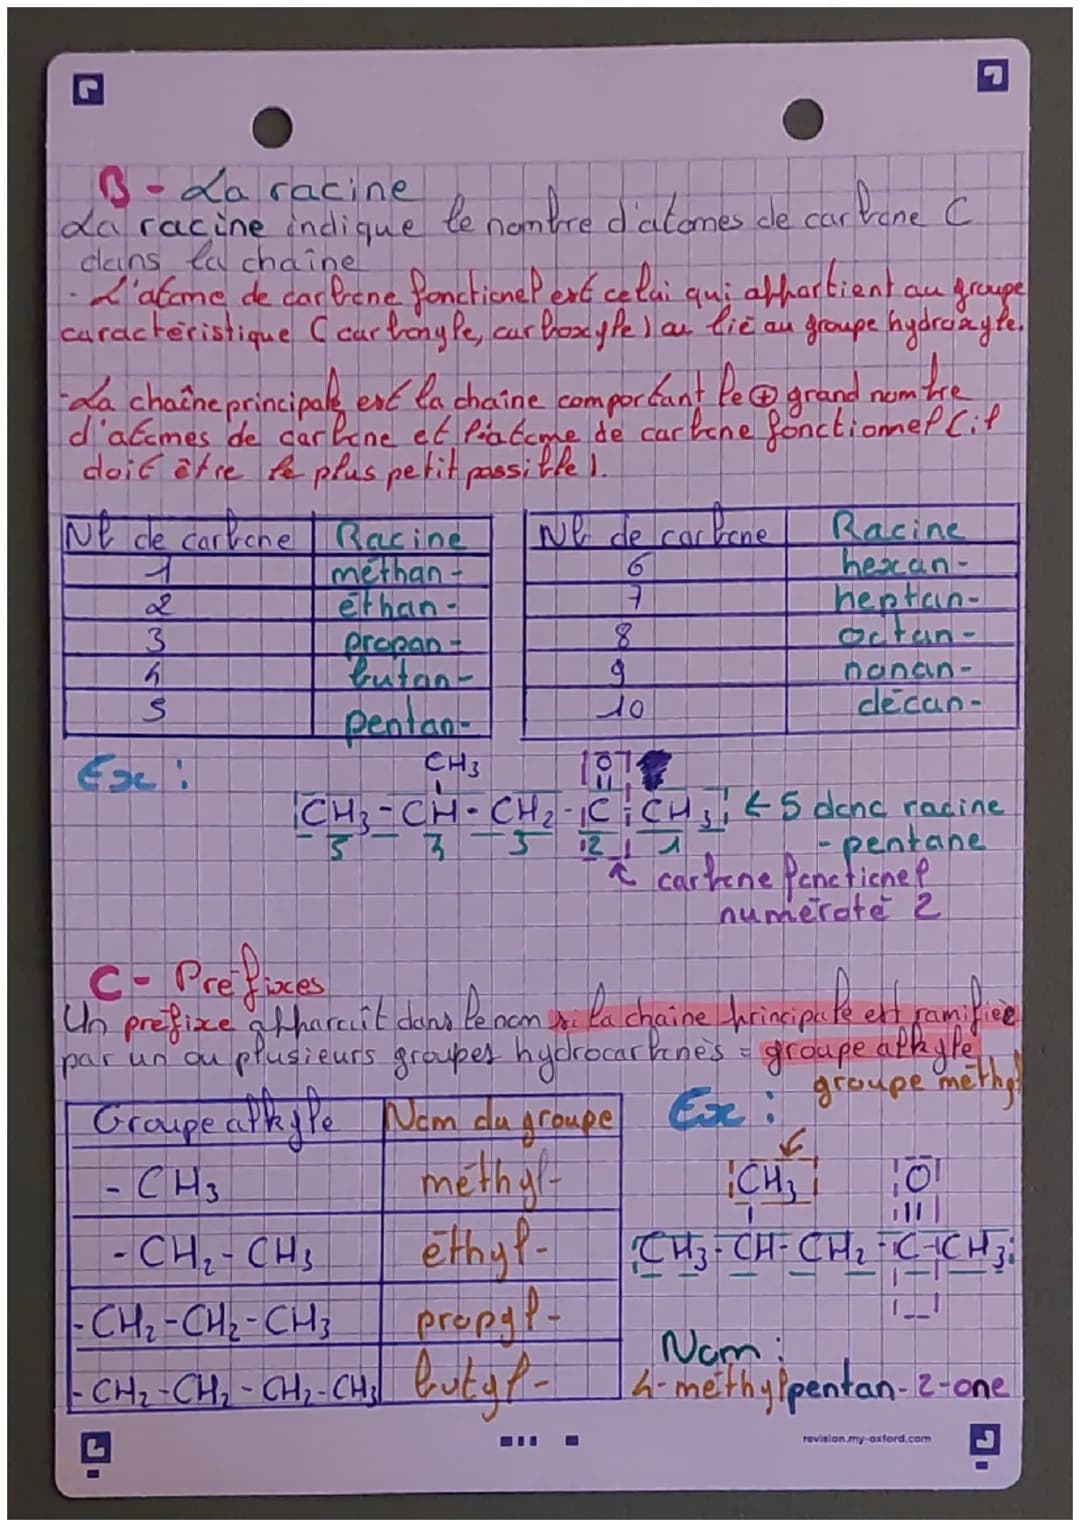 B - La racine
La racine indique le nombre d'atomes de carbone C
dans la chaîne
- L'atome de carbone fonctionel est celui qui appartient au groupe
caractéristique (carbonyle, carboxyle) ou lié au groupe hydroxyle.
- La chaîne principale est la chaîne comportant le ⊕ grand nombre
d'atomes de carbone et l'atome de carbone fonctionnel (il
doit être le plus petit possible).
Nb de carbone | Racine
1 | méthan-
2 | éthan-
3 | propan-
4 | butan-
5 | pentan-
Nb de carbone | Racine
6 | hexan-
7 | heptan-
8 | octan-
9 | nonan-
10 | décan-
Ex :
CH3 O
CH3 - CH - CH2 - C - CH3 ← 5 donc racine
5 3 3 2 1 - pentane
↑ carbone fonctionel
numéroté 2
C - Préfixes
Un préfixe apparaît dans le nom si la chaine principale est ramifiée
par un ou plusieurs groupes hydrocarbonés = groupe alkyle
groupe méthyl
Groupe alkyle | Nom du groupe
- CH3 | méthyl-
- CH2 - CH3 | éthyl-
- CH2 - CH2 - CH3 | propyl-
- CH2 - CH2 - CH2 - CH3 | butyl-
Ex :
CH3 O
CH3 - CH - CH2 - C - CH3
Nom :
4-méthylpentan-2-one
revision.my-oxford.com